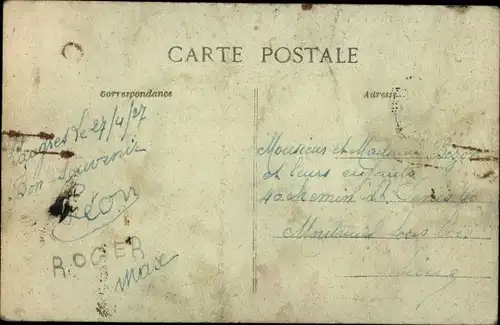 CARTE POSTALE
Correspondance
Adresse
le 27/4/27
Bon Souvenir
Léon
ROGER
Max
Monsieur et Madame
et leurs enfants
40 Chemin St. Denis
Montreuil sous Bois
Seine